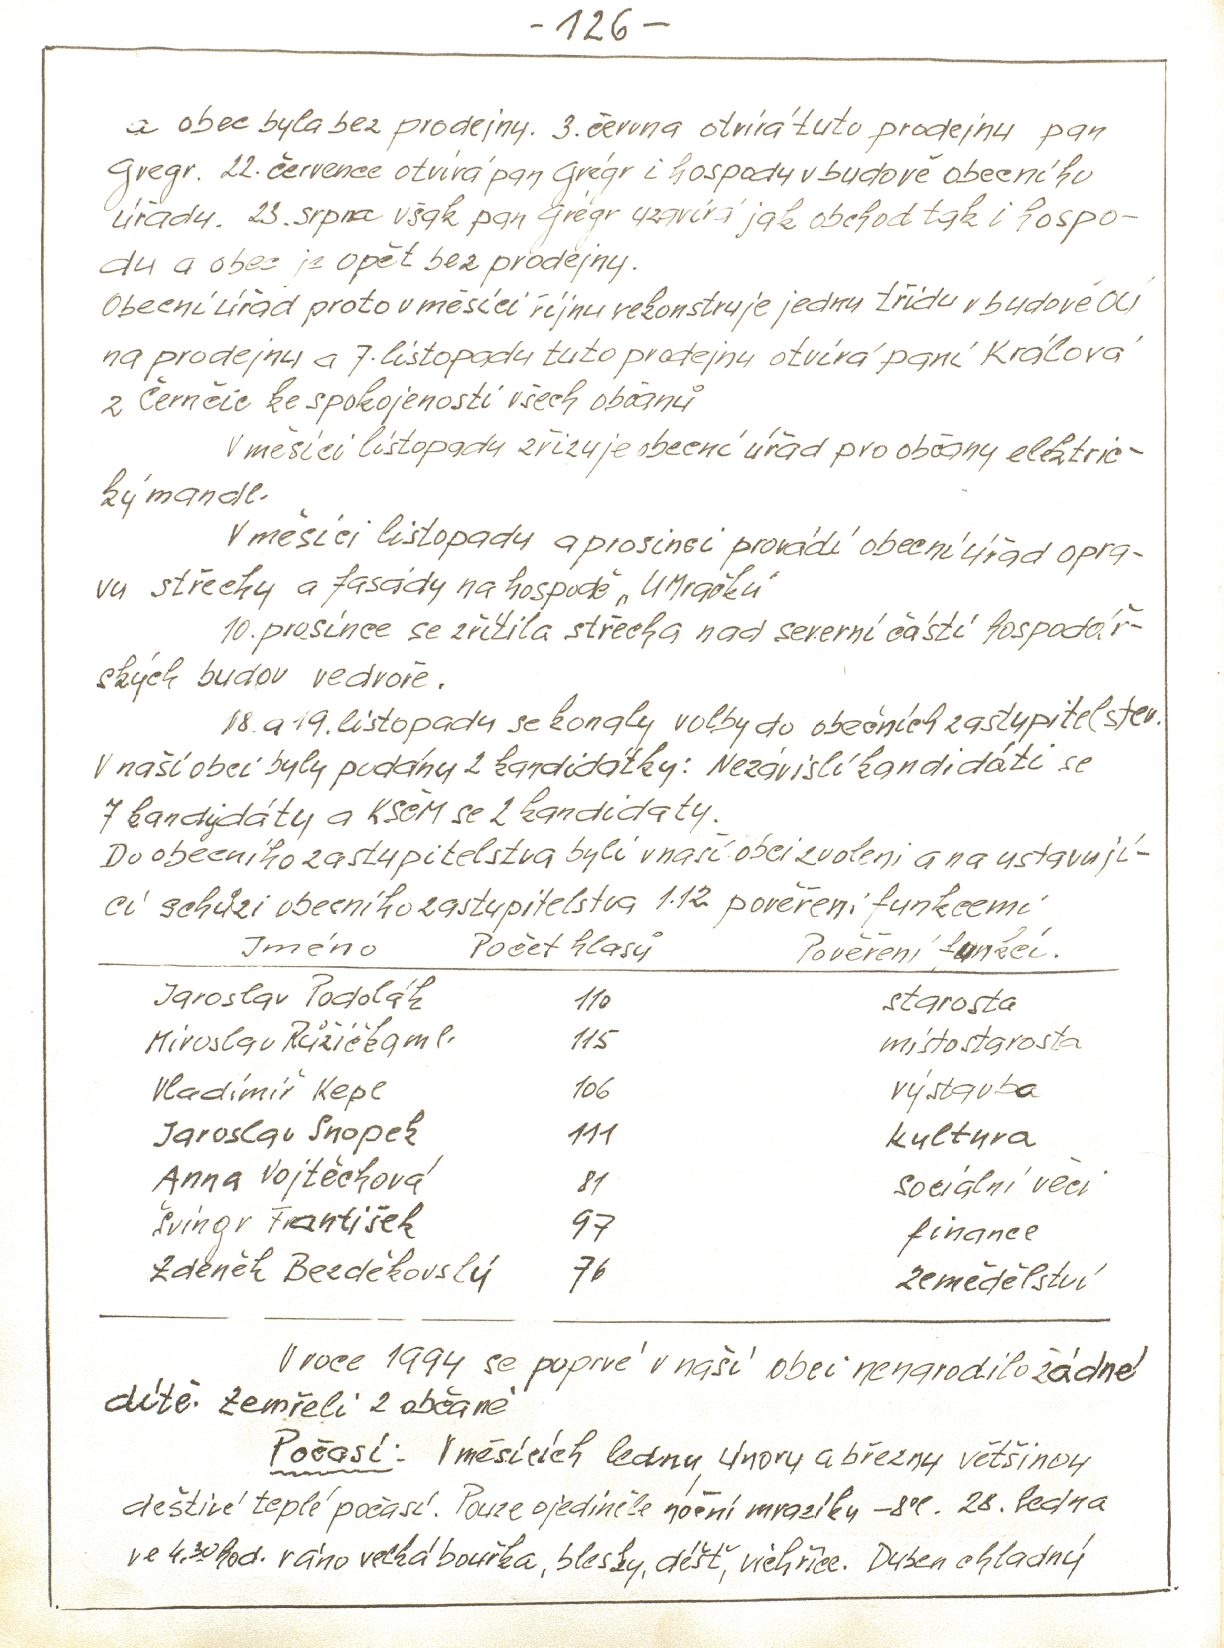 - 126 -
a obec byla bez prodejny. 3. června otvírá tuto prodejnu pan
Gregr. 22. července otvírá pan Grégr i hospodu v budově obecního
úřadu. 23. srpna však pan Grégr uzavírá jak obchod tak i hospo-
du a obec je opět bez prodejny.
Obecní úřad proto v měsíci říjnu rekonstruje jednu třídu v budově OÚ
na prodejnu a 7. listopadu tuto prodejnu otvírá paní Králová
z Černčic ke spokojenosti všech občanů
V měsíci listopadu zřizuje obecní úřad pro občany elektric-
ký mandl.
V měsíci listopadu a prosinci provádí obecní úřad opra-
vu střechy a fasády na hospodě „U Mračků"
10. prosince se zřítila střecha nad severní částí hospodář-
ských budov ve dvoře.
18. a 19. listopadu se konaly volby do obecních zastupitelstev.
V naší obci byly podány 2 kandidátky: Nezávislí kandidáti se
7 kandydáty a KSČM se 2 kandidaty.
Do obecního zastupitelstva byli v naší obci zvoleni a na ustavují-
cí schůzi obecního zastupitelstva 1.12. pověřeni funkcemi
Jméno Počet hlasů Pověření funkcí.
Jaroslav Podolák 110 starosta
Miroslav Růžička ml. 115 místostarosta
Vladimíř Kepl 106 výstavba
Jaroslav Snopek 111 kultura
Anna Vojtěchová 81 sociální věci
Švingr František 97 finance
Zdeněk Bezděkovský 76 zemědělství
V roce 1994 se poprvé v naší obci nenarodilo žádné
dítě. Zemřeli 2 občané
Počasí: V měsících lednu, únoru a březnu většinou
deštivé teplé počasí. Pouze ojediněle noční mrazíky -8°C. 28. ledna
ve 4.30 hod. ráno velká bouřka, blesky, déšť, vichřice. Duben chladný